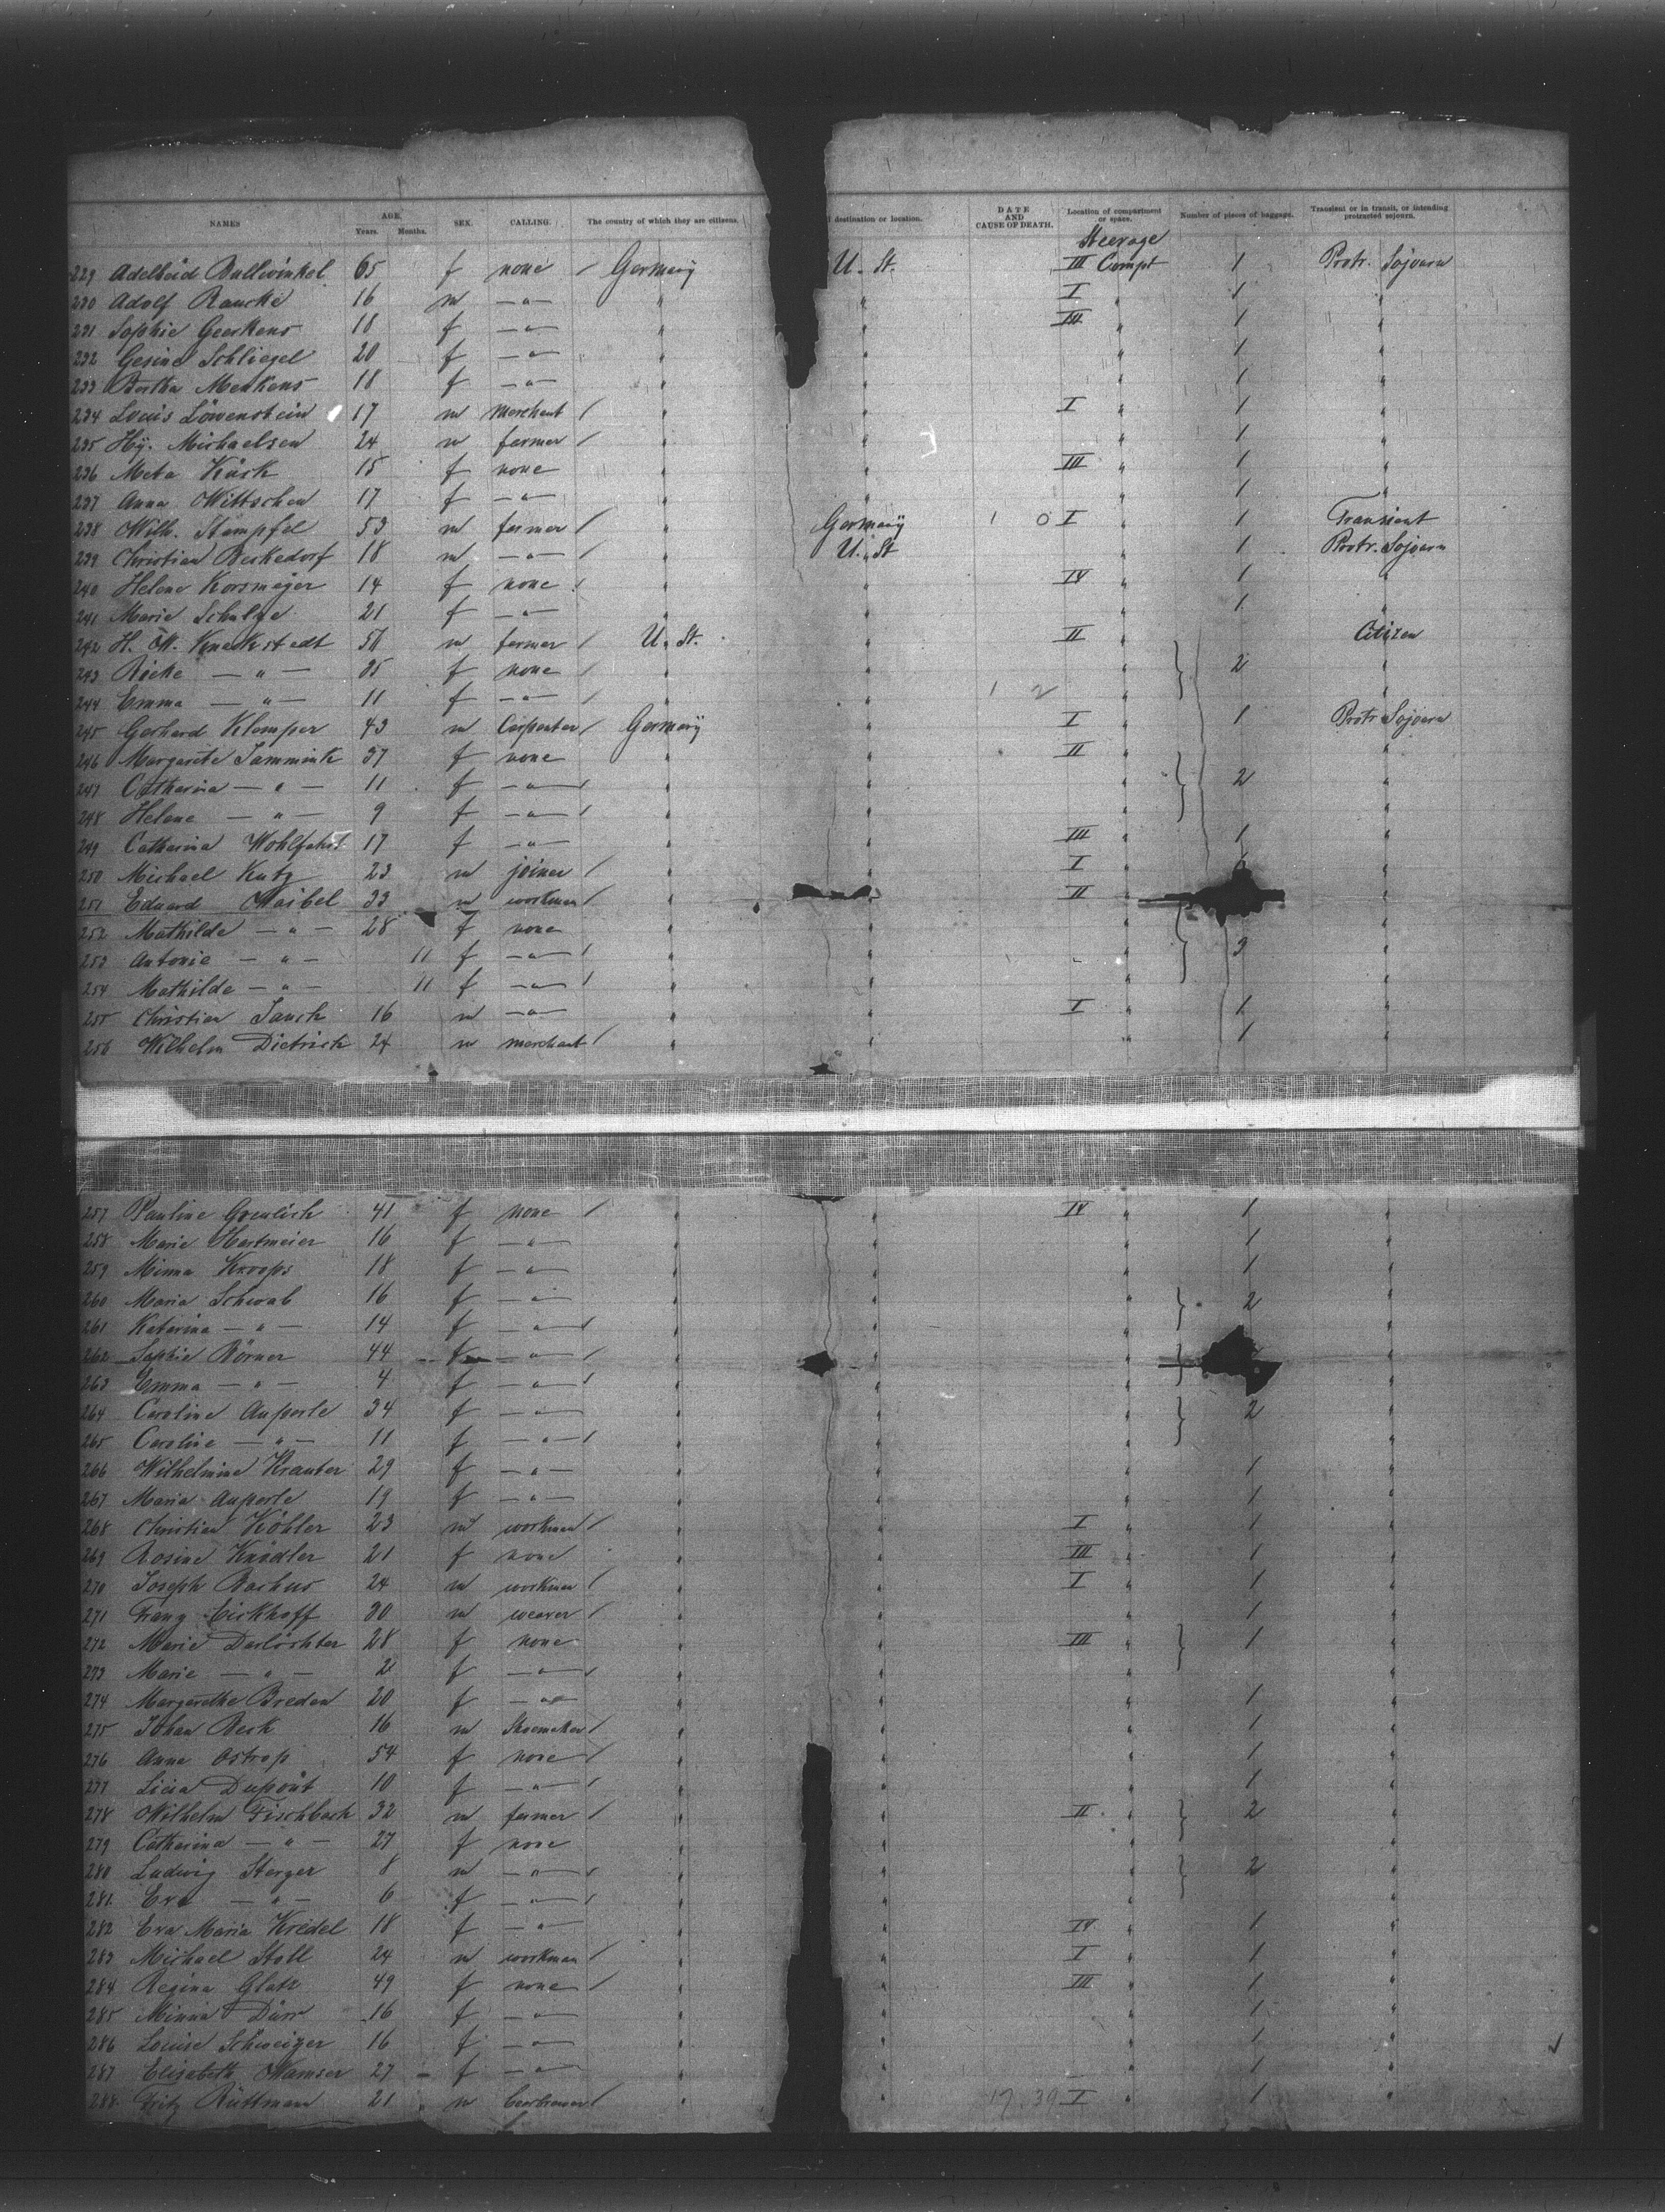 NAMES AGE. Years. Months. SEX. CALLING. The country of which they are citizens. destination or location. DATE AND CAUSE OF DEATH. Location of compartment or space. Number of pieces of baggage. Transient or in transit, or intending protracted sojourn.
Steerage
229 Adelheid Bullwinkel 65 f none / Germany U. St. III Compt 1 Protr. Sojourn
230 Adolf Rancke 16 m —"— " " I " 1 "
231 Sophie Geerkens 18 f —"— " " III " 1 "
232 Gesine Schliegel 20 f —"— " " " 1 "
233 Bertha Menkens 18 f —"— " " " 1 "
234 Louis Löwenstein 17 m merchant / " " I " 1 "
235 Hy. Michaelsen 24 m farmer / " " " 1 "
236 Meta Kück 15 f none " " III " 1 "
237 Anna Wittschen 17 f —"— " " " 1 "
238 Wilh. Stampfel 53 m farmer / " Germany 1 0 I " 1 Transient
239 Christian Beckedorf 18 m —"— / " U. St " 1 Protr. Sojourn
240 Helene Korsmeyer 14 f none / " " IV " 1 "
241 Marie Schulze 21 f —"— " " " 1 "
242 H. W. Knackstedt 58 m farmer / U. St. " II " Citizen
243 Ricke — " — 35 f none / " " " 2 "
244 Emma — " — 11 f —"— / " " 1 2 " "
245 Gerhard Klomper 43 m Carpenter / Germany " I " 1 Protr Sojourn
246 Margarete Tammink 37 f none " " II " "
247 Catharina — " — 11 f —"— / " " " 2 "
248 Helene — " — 9 f —"— / " " " "
249 Catharina Wohlfahrt 17 f —"— " " III " 1 "
250 Michael Kutz 23 m joiner / " " I " "
251 Eduard Waibel 33 m workman / " II "
252 Mathilde — " — 28 f none " " " "
253 Antonie — " — 11 f —"— / " " " 3 "
254 Mathilde — " — 11 f —"— / " " " "
255 Christian Jauch 16 m —"— " " I " 1 "
256 Wilhelm Dietrich 24 m merchant / " " " 1 "
257 Pauline Greulich 41 f none / " " IV " 1 "
258 Marie Hartmeier 16 f —"— " " " 1 "
259 Minna Kroops 18 f —"— " " " 1 "
260 Maria Schwab 16 f —"— " " " 2 "
261 Katarina — " — 14 f —"— / " " " "
262 Sophie Börner 44 f —"— / " " " "
263 Emma — " — 4 f —"— / " " " "
264 Caroline Auperle 34 f —"— " " " 2 "
265 Caroline — " — 11 f —"— / " " " "
266 Wilhelmine Krauter 29 f —"— " " " 1 "
267 Maria Auperle 19 f —"— " " " 1 "
268 Christian Köhler 23 m workman / " " I " 1 "
269 Rosine Knödler 21 f none " " III " 1 "
270 Joseph Bachus 24 m workman / " " I " 1 "
271 Franz Eickhoff 30 m weaver / " " " 1 "
272 Marie Darlöchter 28 f none " " III " 1 "
273 Marie — " — 2 f —"— / " " " "
274 Margarethe Breden 20 f —"— " " " 1 "
275 Johan Beck 16 m Shoemaker / " " " 1 "
276 Anna Ostrop 54 f none / " " " 1 "
277 Licia Dupont 10 f —"— / " " " 1 "
278 Wilhelm Fischbach 32 m farmer / " " II " 2 "
279 Catharina — " — 27 f none " " " "
280 Ludwig Sterger 8 m —"— / " " " 2 "
281 Eva — " — 6 f —"— / " " " "
282 Eva Maria Kredel 18 f —"— " " IV " 1 "
283 Michael Stoll 24 m workman / " " I " 1 "
284 Regina Glatz 49 f none / " " III " 1 "
285 Minna Dürr 16 f —"— " " " 1 "
286 Louise Schweizer 16 f —"— " " " 1 "
287 Elisabeth Wamser 27 f —"— " " " 1 "
288 Fritz Rüttmann 21 m / " 17.39 I " 1 "